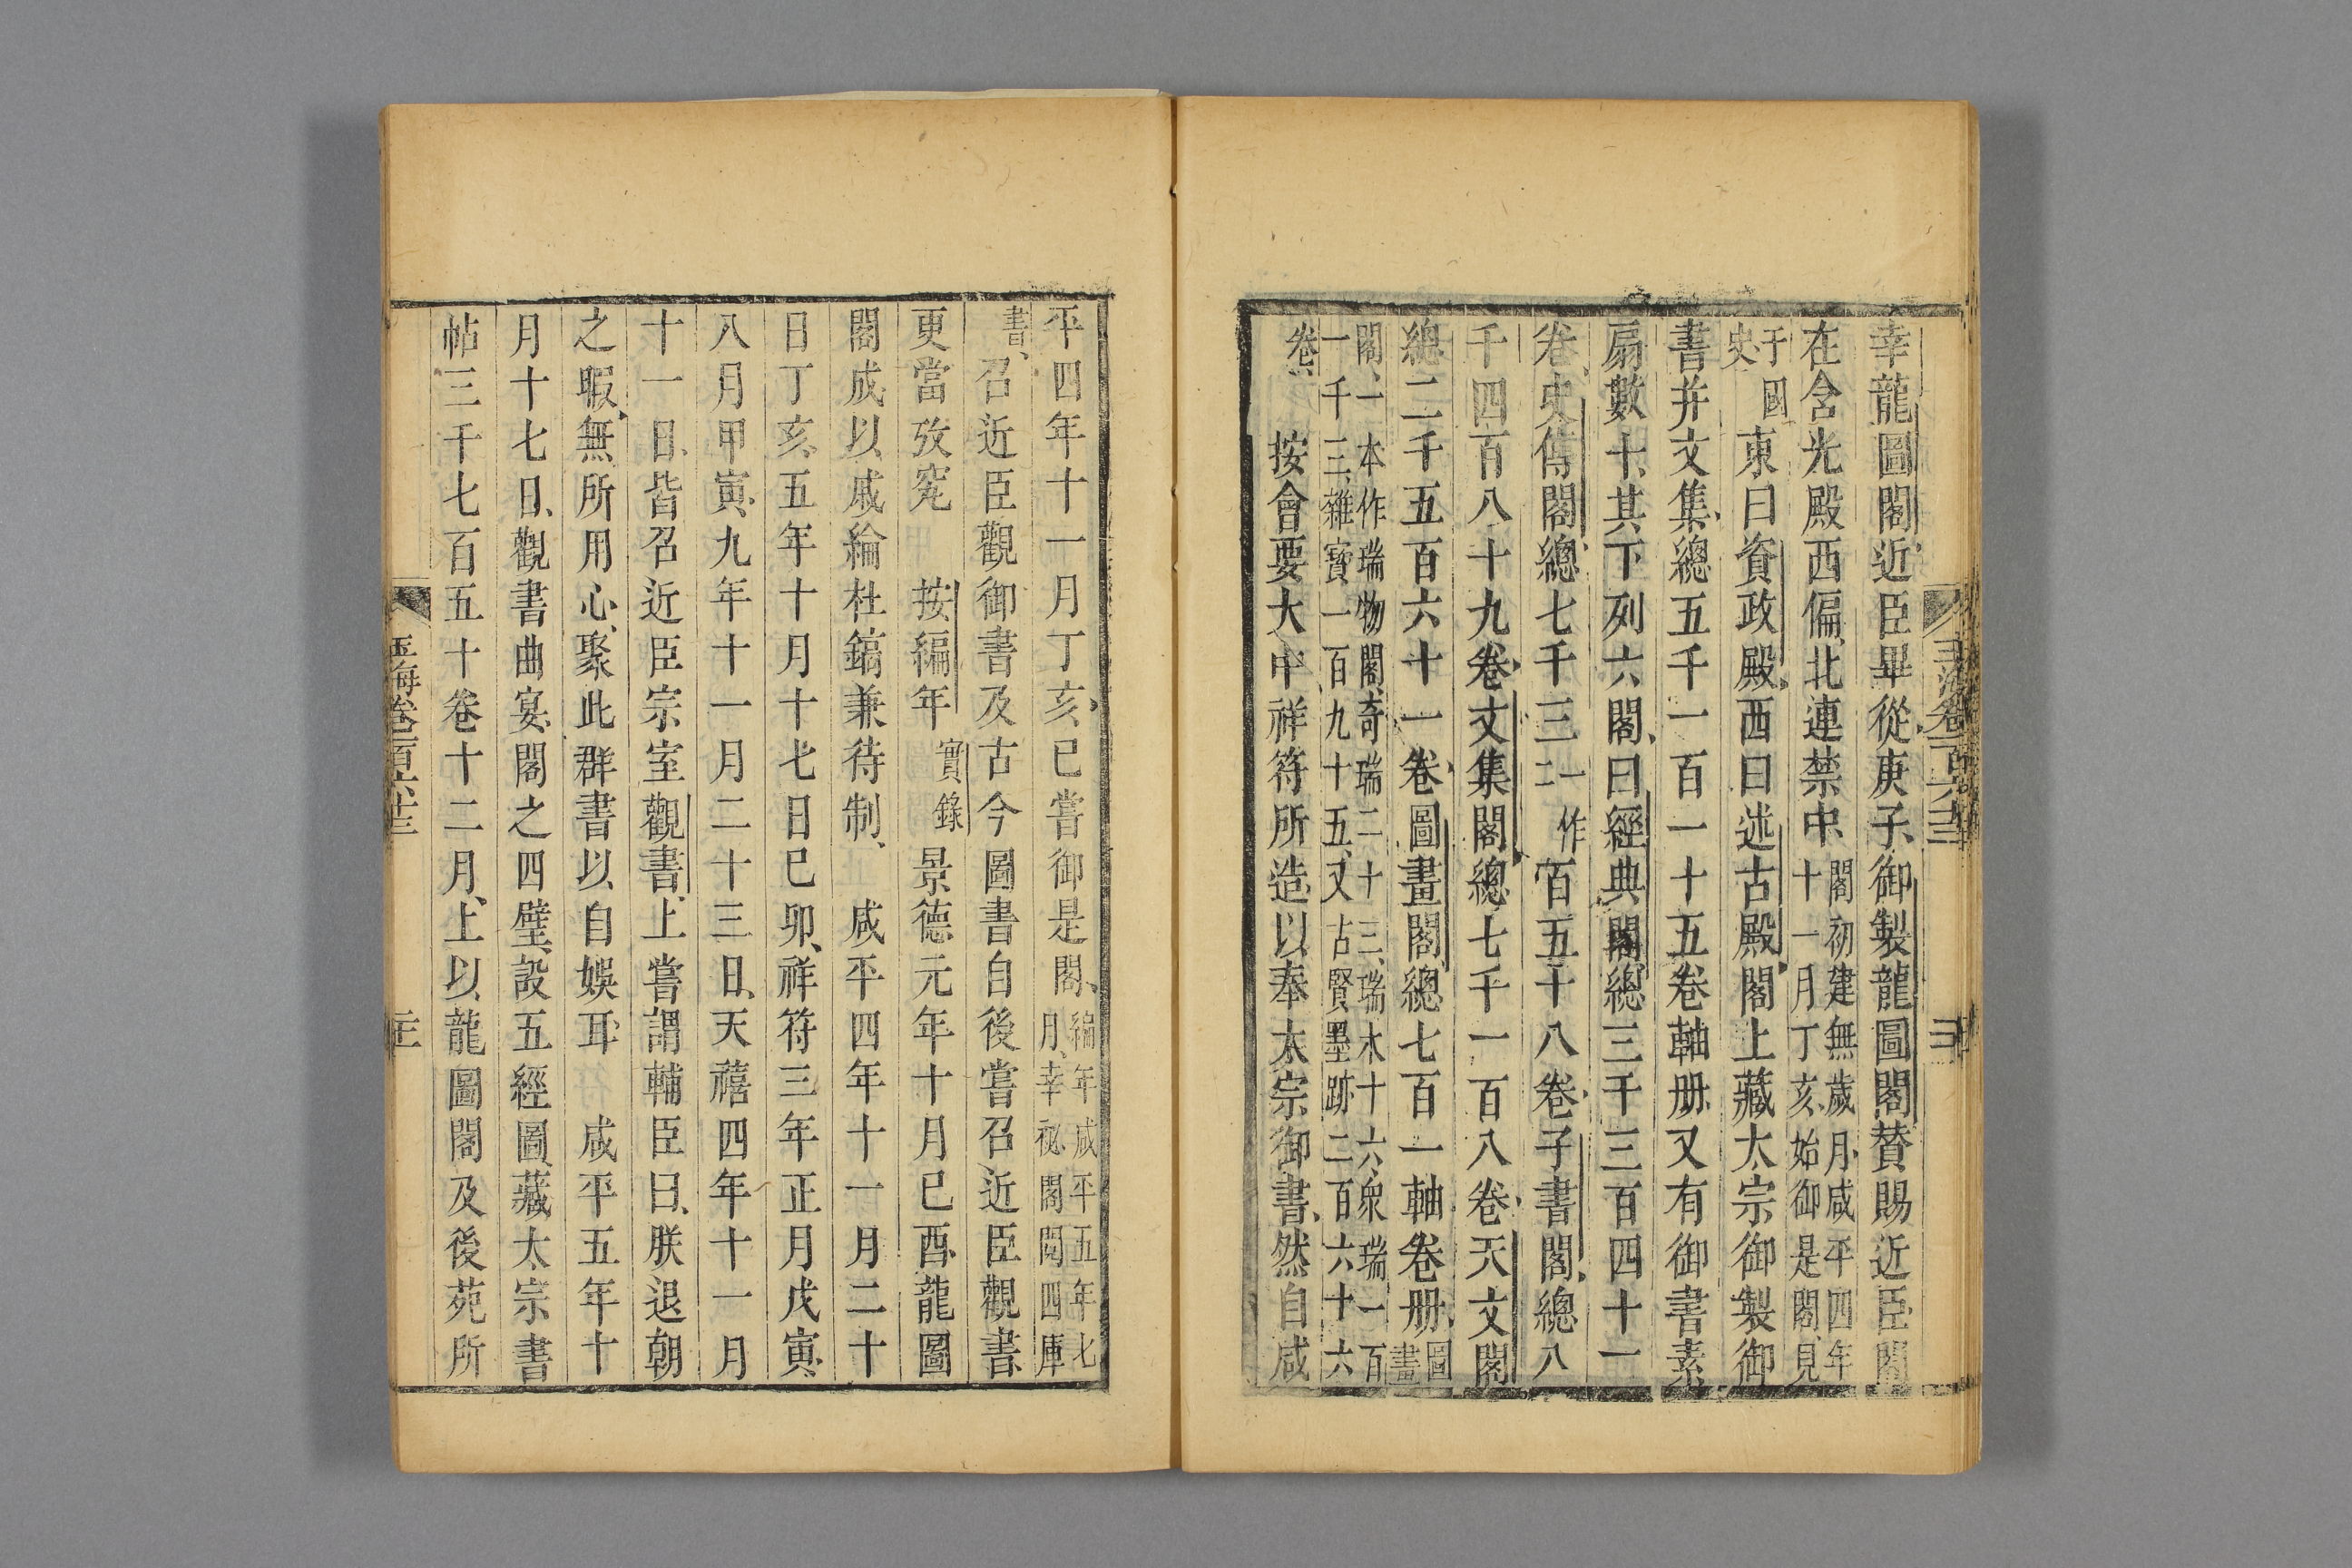 幸龍圖閣近臣畢從庚子御製龍圖閣贊賜近臣閣
在含光殿西偏北連禁中閣初建無歲月咸平四年
十一月丁亥始御是閣見
于國
史東曰資政殿西曰述古殿閣上藏太宗御製御
書并文集總五千一百一十五卷軸册又有御書素
扇數十其下列六閣曰經典閣總三千三百四十一
卷史傳閣總七千三一作
二百五十八卷子書閣總八
千四百八十九卷文集閣總七千一百八卷天文閣
總二千五百六十一卷圖畫閣總七百一軸卷册圖
畫
閣一本作瑞物閣奇瑞二十三瑞木十六衆瑞一百
一千三雜寶一百九十五又古賢墨跡二百六十六
卷按會要大中祥符所造以奉太宗御書然自咸
玉海卷一百六十三
平四年十一月丁亥已嘗御是閣編年咸平五年七
月幸祕閣閱四庫
書召近臣觀御書及古今圖書自後嘗召近臣觀書
更當攷究 按編年實錄景德元年十月己酉龍圖
閣成以戚綸杜鎬兼待制 咸平四年十一月二十
日丁亥五年十月十七日己卯祥符三年正月戊寅
八月甲寅九年十一月二十三日天禧四年十一月
十一日皆召近臣宗室觀書上嘗謂輔臣曰朕退朝
之暇無所用心聚此群書以自娛耳 咸平五年十
月十七日觀書曲宴閣之四壁設五經圖藏太宗書
帖三千七百五十卷十二月上以龍圖閣及後苑所
玉海卷一百六十三